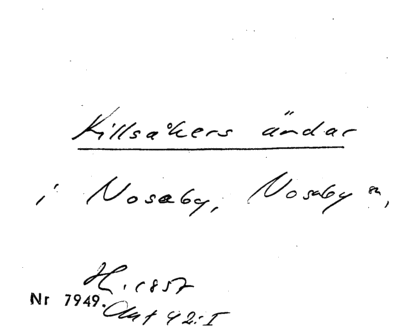 Killsåkers ändar
i Nosaby, Nosaby sn,
H. 1857
Nr 7949. Akt 42:I